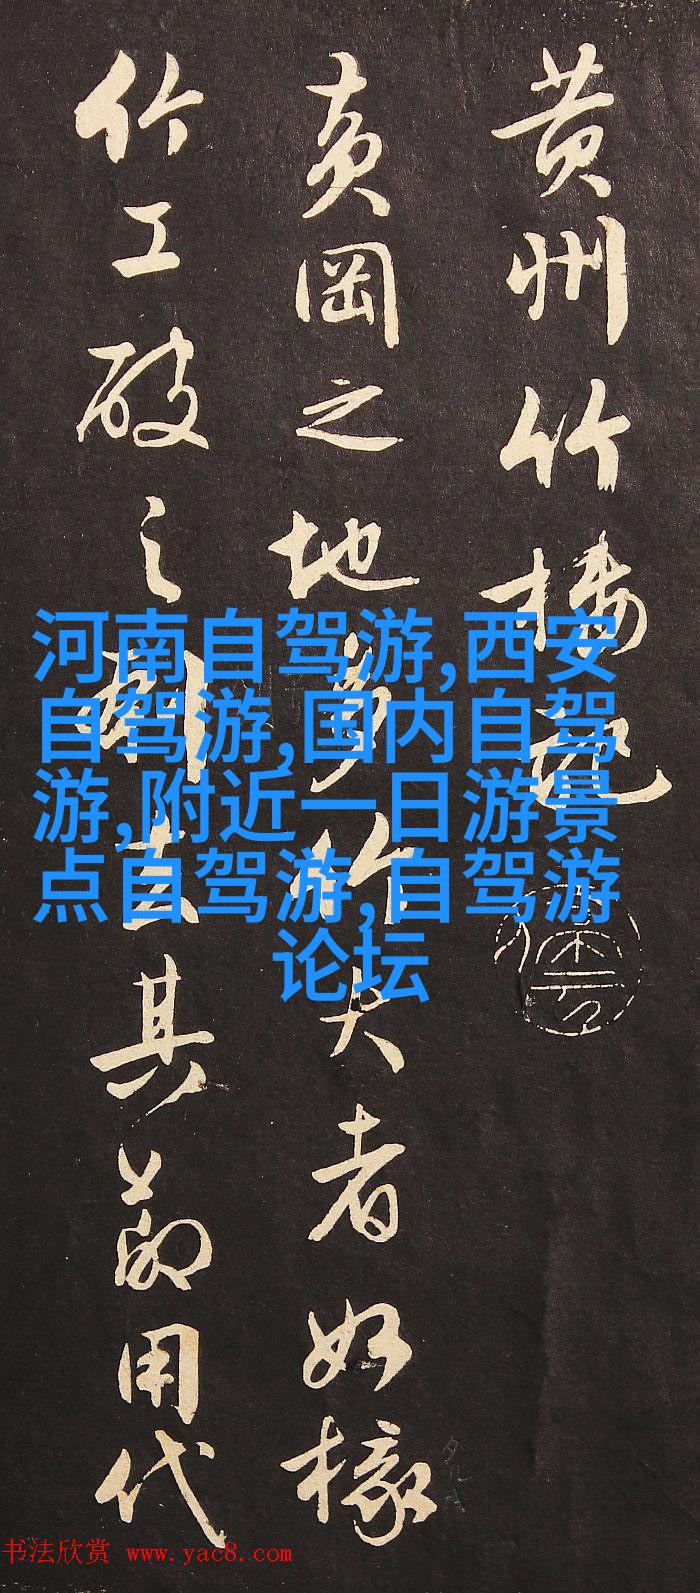 黄州竹樓記
黄岡之地多竹大者如椽
竹工破之刳去其節用代
河南自驾游,西安
自驾游,国内自驾
游,附近一日游景
点自驾游,自驾游
论坛
书法欣赏 www.yac8.com